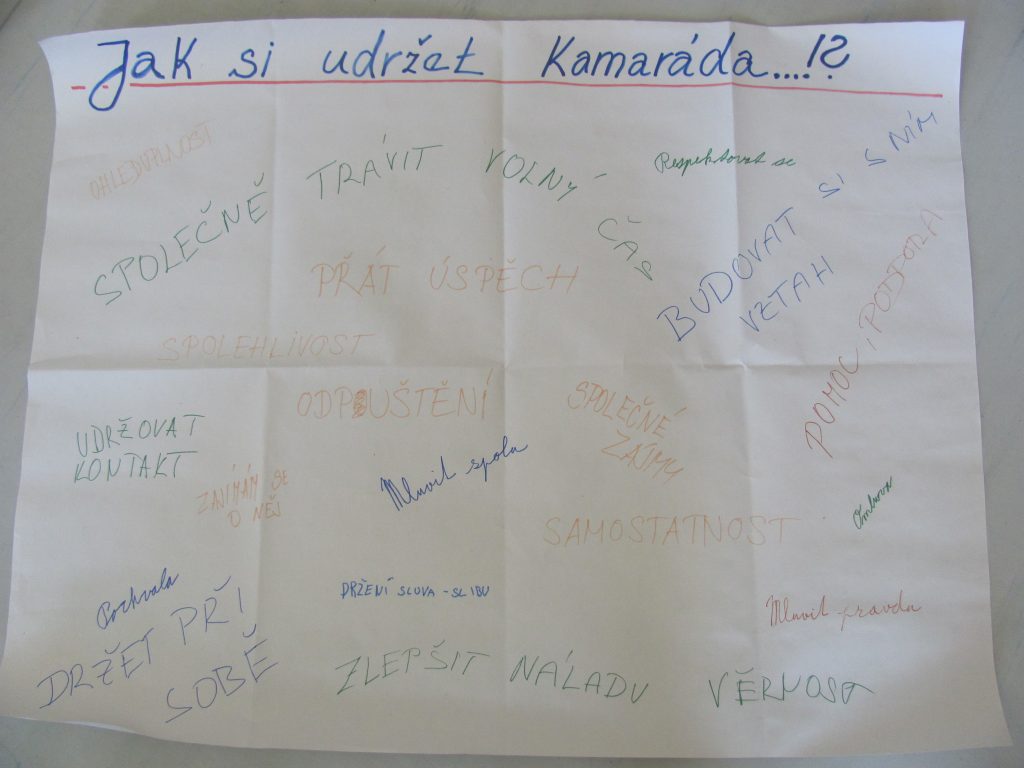 Jak si udržet Kamaráda....!?
OHLEDUPLNOST
SPOLEČNĚ TRÁVIT VOLNÝ ČAS
Respektovat se
BUDOVAT SI S NÍM
VZTAH
PŘÁT ÚSPĚCH
POMOC, PODPORA
SPOLEHLIVOST
ODPUŠTĚNÍ
SPOLEČNÉ
ZÁJMY
UDRŽOVAT
KONTAKT
ZAJÍMÁM SE
O NĚJ
Mluvit spolu
SAMOSTATNOST
Omluva
Pochvala
DRŽENÍ SLOVA - SLIBU
Mluvit pravdu
DRŽET PŘI
SOBĚ
ZLEPŠIT NÁLADU
VĚRNOST